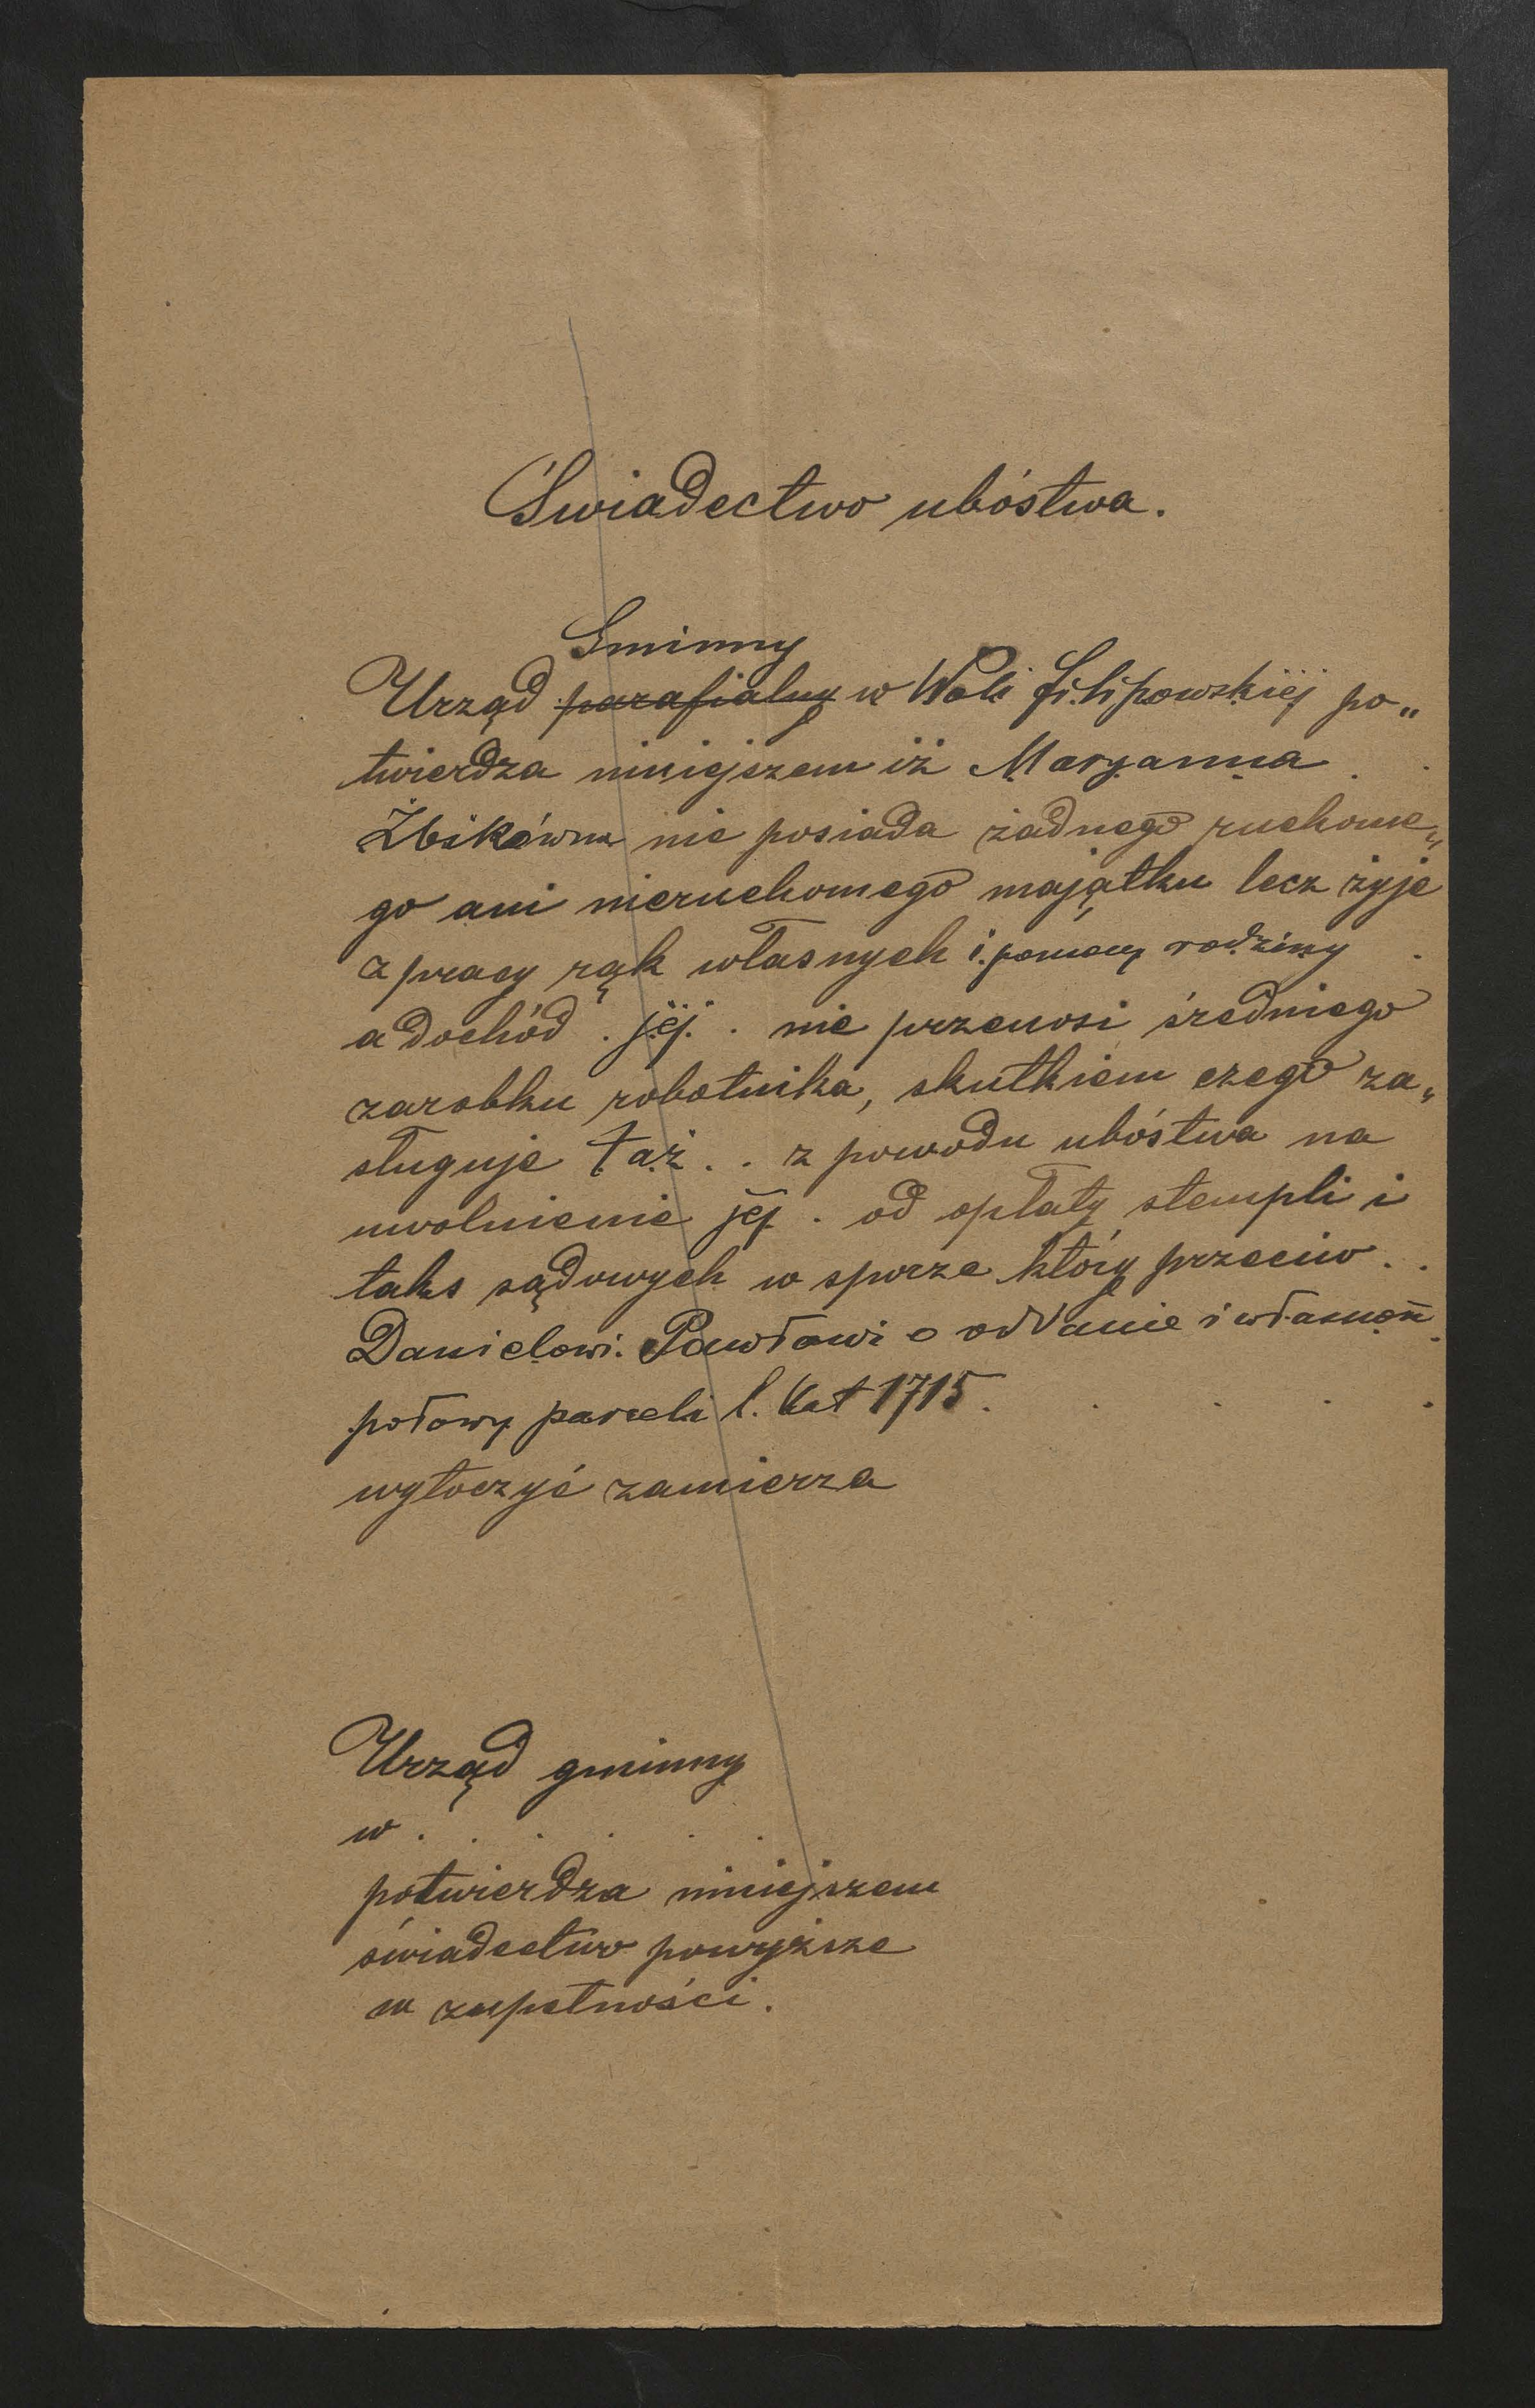 Świadectwo ubóstwa.
Gminny
Urząd parafialny w Woli filipowskiej po„
twierdza niniejszem iż Maryanna
Żbikówna nie posiada żadnego ruchome„
go ani nieruchomego majątku lecz żyje
z pracy rąk własnych i pomocy rodziny
a dochód . jej . nie przenosi średniego
zarobku robotnika, skutkiem czego za„
sługuje taż . . z powodu ubóstwa na
uwolnienie jej . od opłaty stempli i
taks sądowych w sporze który przeciw . .
Danielowi Pawłowi o oddanie i własność
połowy parceli l. kat 1715 . . . . .
wytoczyć zamierza
Urząd gminny
w . . . . . .
potwierdza niniejszem
świadectwo powyższe
w zupełności.